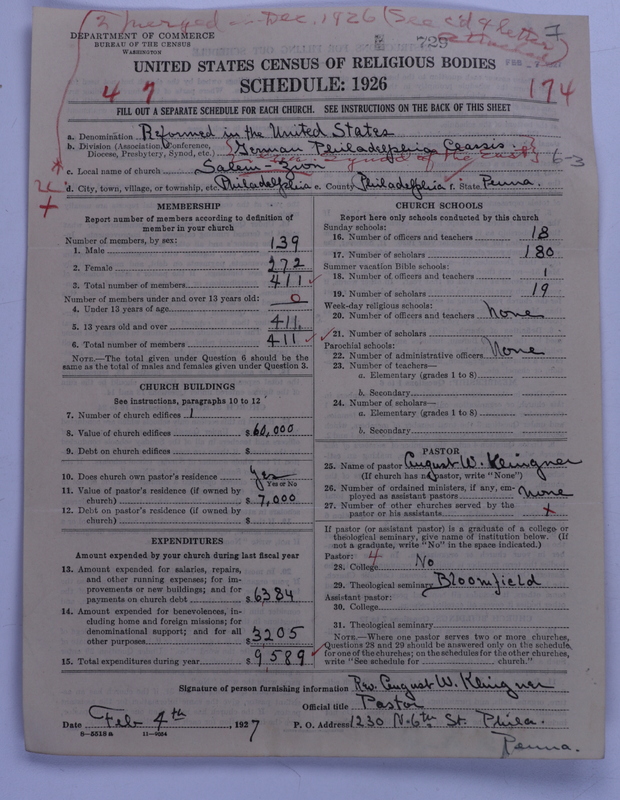 2 merged in Dec. 1926 (See c'd & letter
attached)
7
DEPARTMENT OF COMMERCE
BUREAU OF THE CENSUS
WASHINGTON
729
FEB
UNITED STATES CENSUS OF RELIGIOUS BODIES
SCHEDULE: 1926
4 7
174
FILL OUT A SEPARATE SCHEDULE FOR EACH CHURCH. SEE INSTRUCTIONS ON THE BACK OF THIS SHEET
a. Denomination Reformed in the United States
b. Division (Association, Conference, Diocese, Presbytery, Synod, etc.) German Philadelphia Classis.
Synod of the East 6-3
c. Local name of church Salem-Zion
d. City, town, village, or township, etc. Philadelphia e. County Philadelphia f. State Penna.
MEMBERSHIP
Report number of members according to definition of
member in your church
Number of members, by sex:
1. Male 139
2. Female 272
3. Total number of members 411
Number of members under and over 13 years old:
4. Under 13 years of age 0
5. 13 years old and over 411
6. Total number of members 411
NOTE.—The total given under Question 6 should be the
same as the total of males and females given under Question 3.
CHURCH BUILDINGS
See instructions, paragraphs 10 to 12
7. Number of church edifices 1
8. Value of church edifices $60,000
9. Debt on church edifices $
10. Does church own pastor's residence Yes
Yes or No
11. Value of pastor's residence (if owned by
church) $7,000
12. Debt on pastor's residence (if owned by
church) $
EXPENDITURES
Amount expended by your church during last fiscal year
13. Amount expended for salaries, repairs,
and other running expenses; for im-
provements or new buildings; and for
payments on church debt $6384
14. Amount expended for benevolences, in-
cluding home and foreign missions; for
denominational support; and for all
other purposes $3205
15. Total expenditures during year $9589
CHURCH SCHOOLS
Report here only schools conducted by this church
Sunday schools:
16. Number of officers and teachers 18
17. Number of scholars 180
Summer vacation Bible schools:
18. Number of officers and teachers 1
19. Number of scholars 19
Week-day religious schools:
20. Number of officers and teachers None
21. Number of scholars
Parochial schools:
22. Number of administrative officers None
23. Number of teachers—
a. Elementary (grades 1 to 8)
b. Secondary
24. Number of scholars—
a. Elementary (grades 1 to 8)
b. Secondary
PASTOR
25. Name of pastor August W. Klingner
(If church has no pastor, write "None")
26. Number of ordained ministers, if any, em-
ployed as assistant pastors None
27. Number of other churches served by the
pastor or his assistants x
If pastor (or assistant pastor) is a graduate of a college or
theological seminary, give name of institution below. (If
not a graduate, write "No" in the space indicated.)
Pastor: 4
28. College No
29. Theological seminary Bloomfield
Assistant pastor:
30. College
31. Theological seminary
NOTE.—Where one pastor serves two or more churches,
Questions 28 and 29 should be answered only on the schedule
for one of the churches; on the schedules for the other churches,
write "See schedule for church."
Signature of person furnishing information Rev. August W. Klingner
Official title Pastor
Date Feb 4th, 1927 P. O. Address 1230 N. 6th St. Phila.
Penna.
8—5518a 11—9034